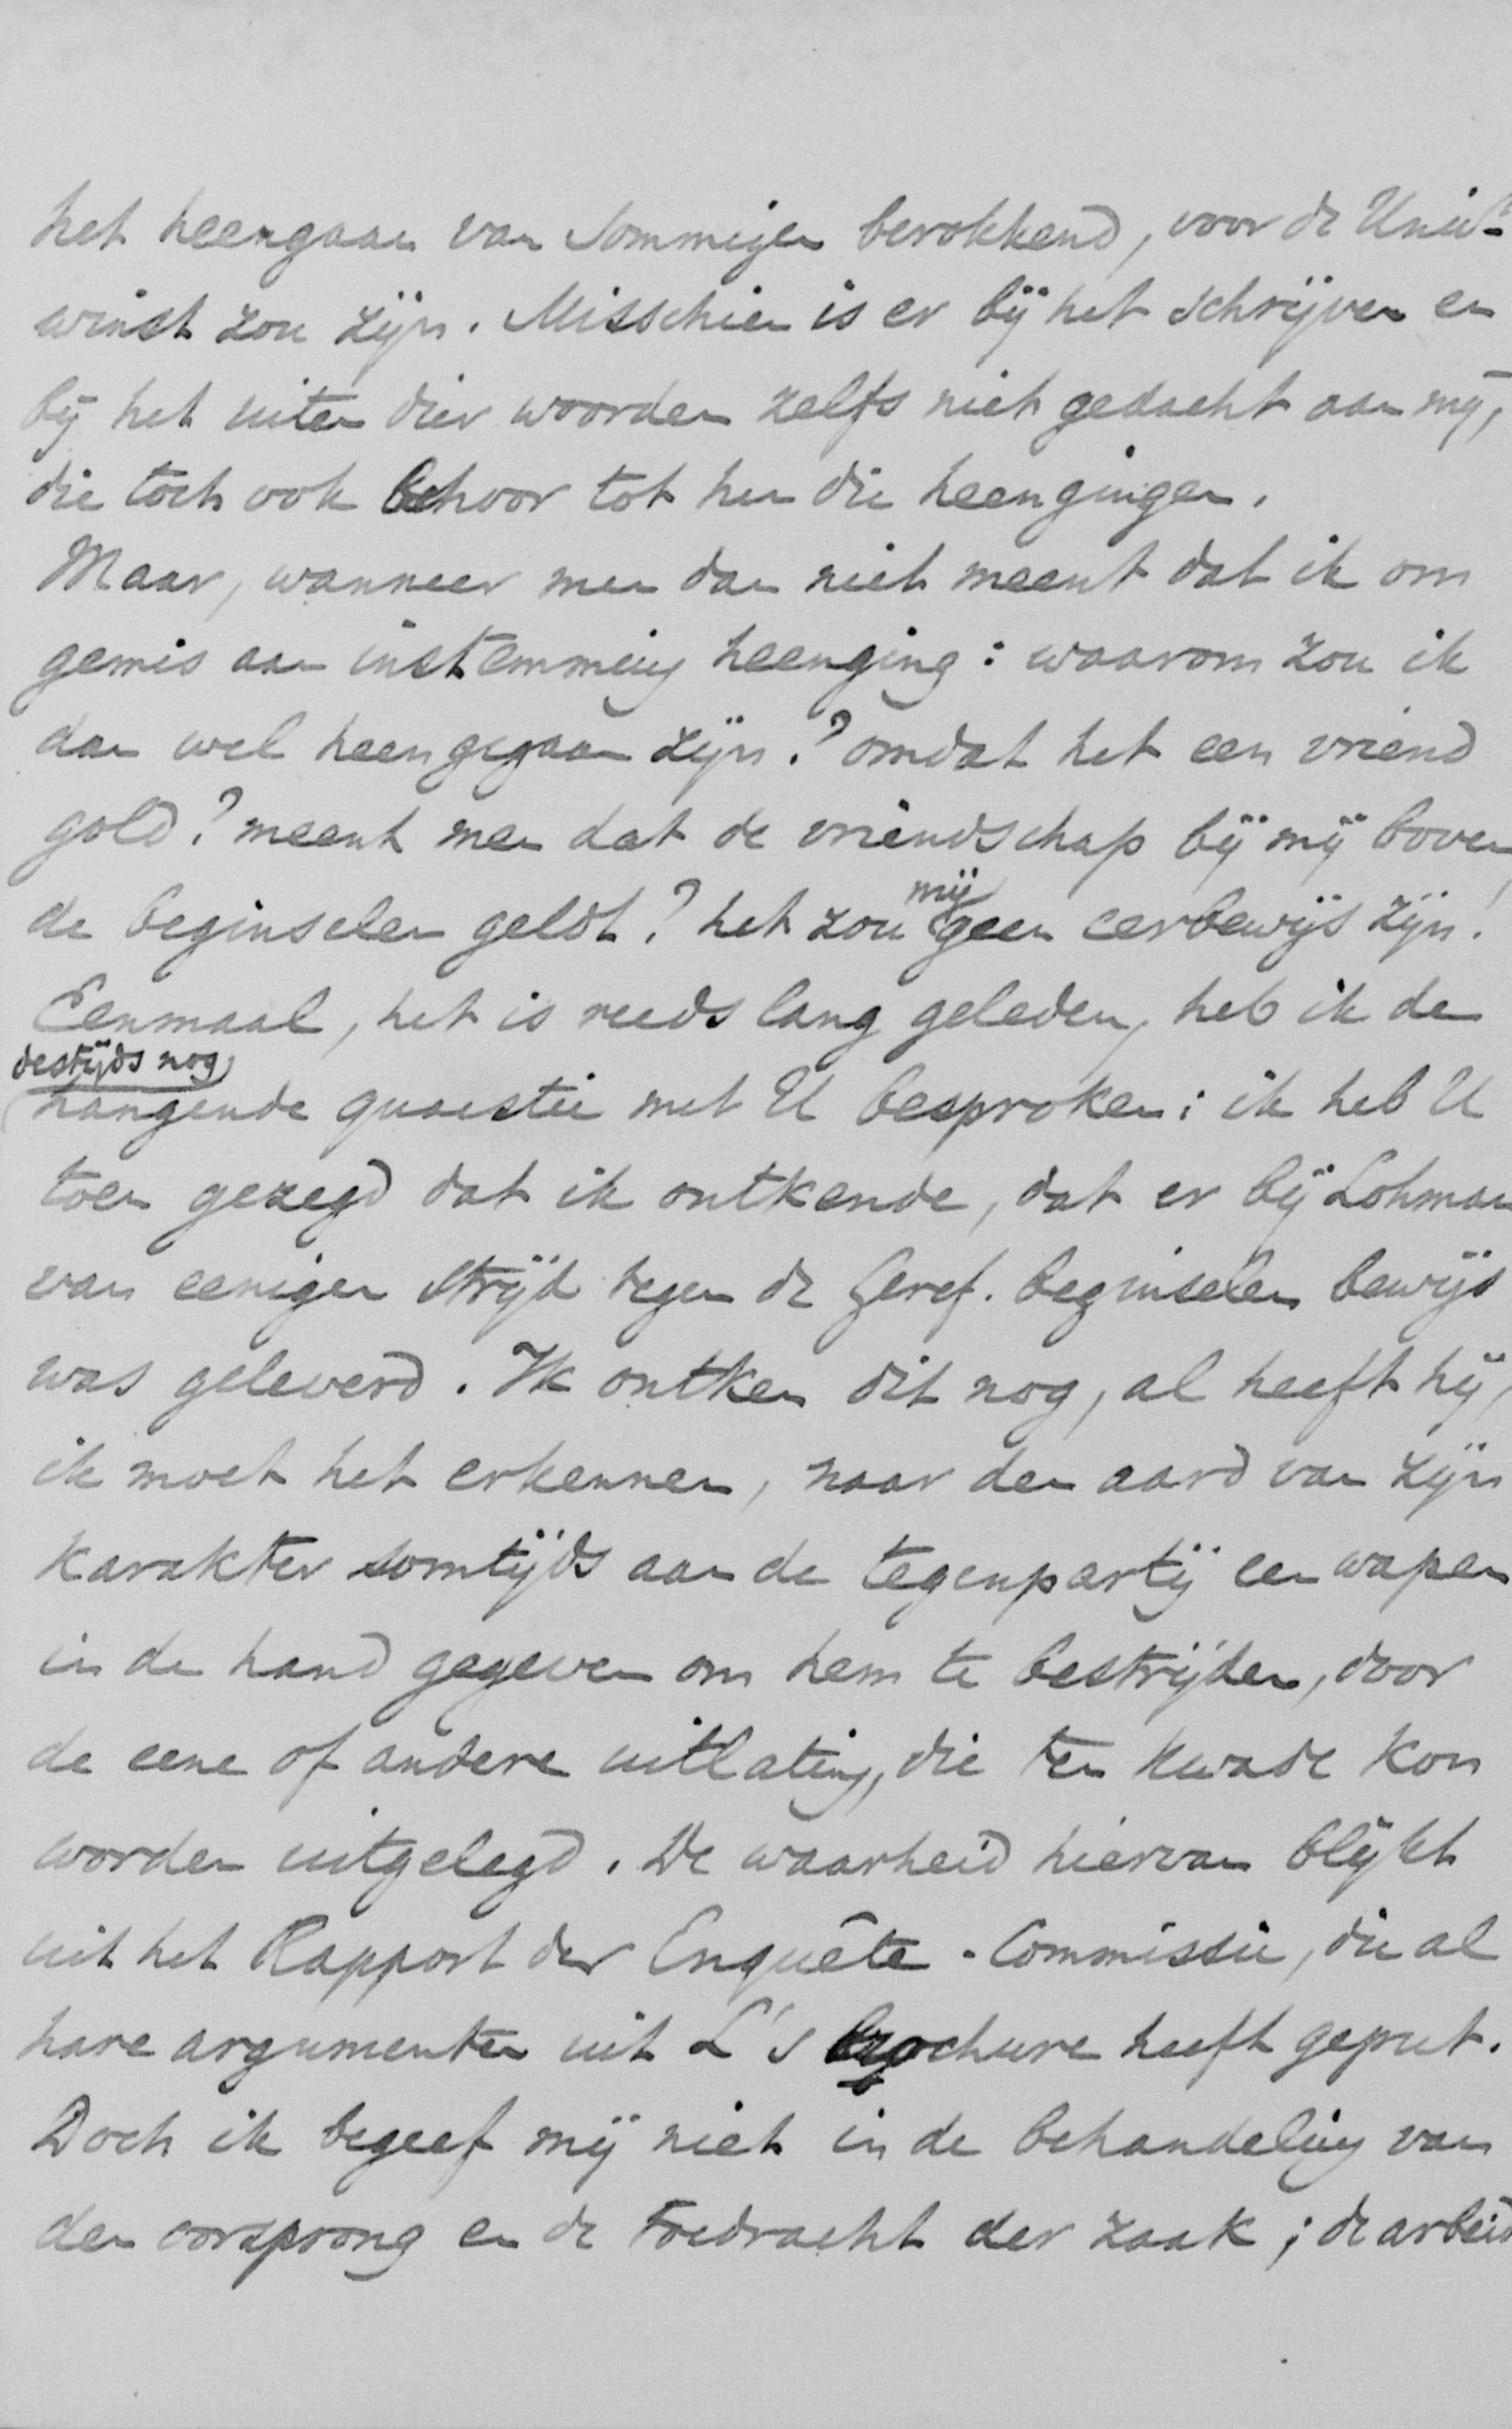 het heengaan van sommigen berokkend, voor de Unie-
winst zou zijn. Misschien is er bij het schrijven en
bij het uiten dier woorden zelfs niet gedacht aan mij,
die toch ook behoor tot hen die heengingen.
Maar, wanneer men dan niet meent dat ik om
gemis aan instemming heenging: waarom zou ik
dan wel heengegaan zijn? omdat het een vriend
gold? meent men dat de vriendschap bij mij boven
de beginselen geldt? het zou mij geen eerbewijs zijn!
Eenmaal, het is reeds lang geleden, heb ik de
destijds nog
hangende quaestie met U besproken: ik heb U
toen gezegd dat ik ontkende, dat er bij Lohman
van eenigen strijd tegen de Geref. beginselen bewijs
was geleverd. Ik ontken dit nog, al heeft hij,
ik moet het erkennen, naar den aard van zijn
karakter somtijds aan de tegenpartij een wapen
in de hand gegeven om hem te bestrijden, door
de eene of andere uitlating, die ten kwade kon
worden uitgelegd. De waarheid hiervan blijkt
uit het Rapport der Enquête-Commissie, die al
hare argumenten uit L's brochure heeft geput.
Doch ik begeef mij niet in de behandeling van
den oorsprong en de toedracht der zaak; de arbeid